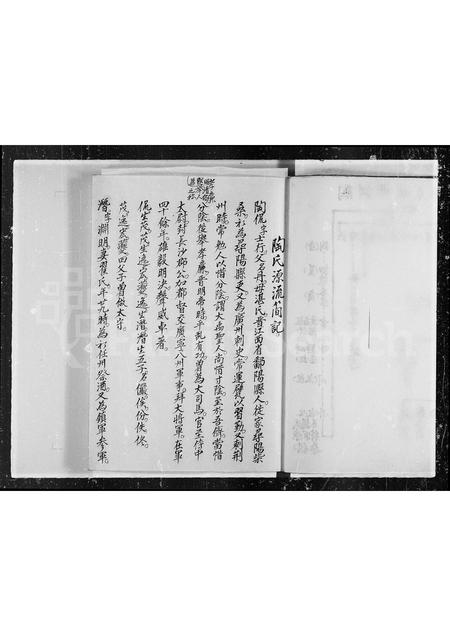 陶氏源流簡記
陶侃字士行父名丹母湛氏晉江西省鄱陽縣人徙家尋陽柴
桑杉為尋陽縣吏又為廣州刺史常運甓以習勤又刺荊
州時常勉人以惜分陰謂大禹聖人尚惜寸陰至於吾儕當惜
分陰後舉孝廉晉明帝時平亂有功曾為大司馬官至侍中
大尉封長沙郡公加都督交廣寧八州軍事拜大將軍在軍
四十餘年雄毅明決聲威卓著
侃生茂茂生逸宏夔逸生潛潛生五子名儼俟份佚佟
茂逸宏夔四父子曾做太守
潛字淵明妻翟氏年廿九時為杉任州祭酒又為鎮軍參軍